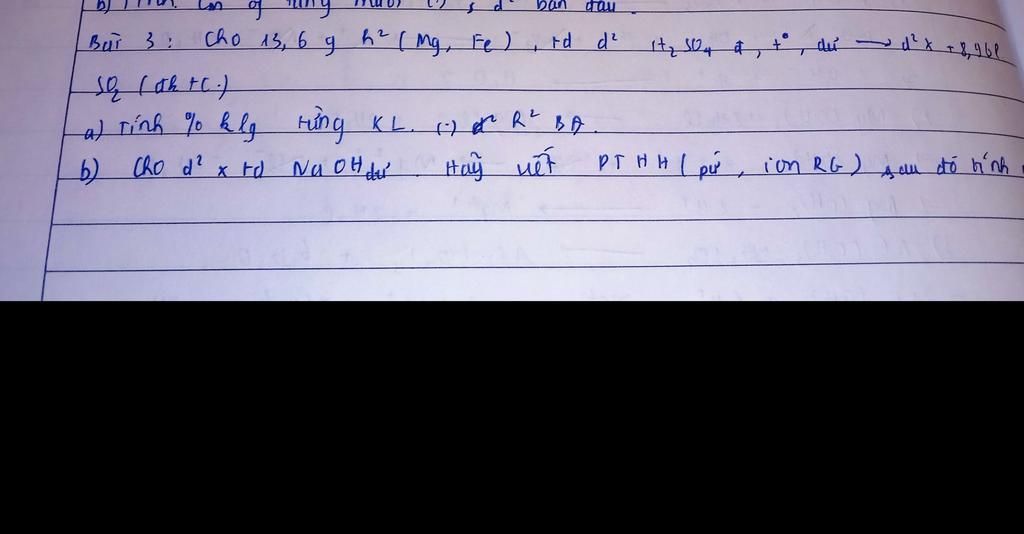 b) Tính CM of từng muối (.) d² ban đầu.
Bài 3: Cho 13,6 g h² (Mg, Fe), td d² H₂SO₄ đ, t°, dư → d² x + 8,96l
SO₂ (đktc.)
a) Tính % klg từng KL. (.) d² R² BĐ.
b) Cho d² x td NaOH dư. Hãy viết PTHH (pứ, ion RG) sau đó tính